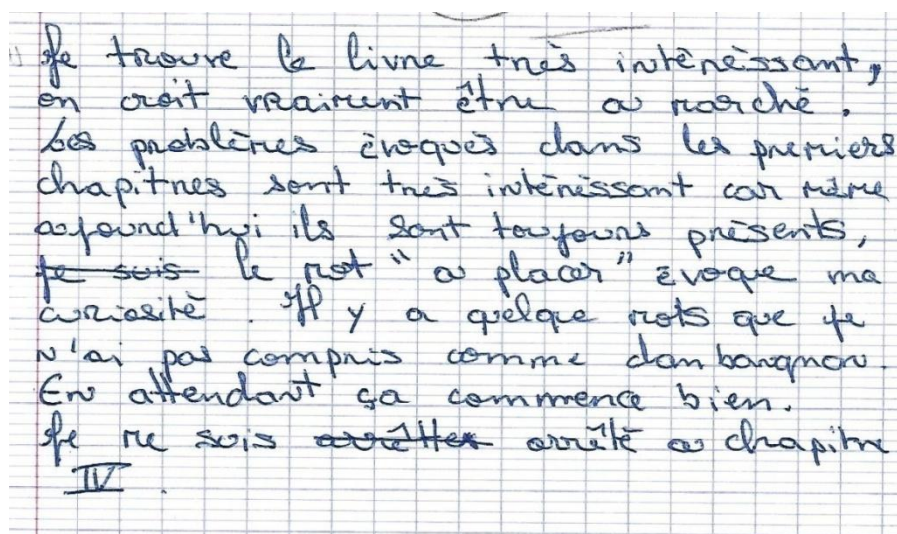 Je trouve le livre très intérèssant,
on croit vraiment être au marché.
Les problèmes évoqués dans les premiers
chapitres sont très intérèssant car même
aujourd'hui ils sont toujours présents,
je suis le mot "au placar" évoque ma
curiosité. Il y a quelque mots que je
n'ai pas compris comme
En attendant ça commence bien.
Je me suis arrêter arrêté au chapitre
IV.